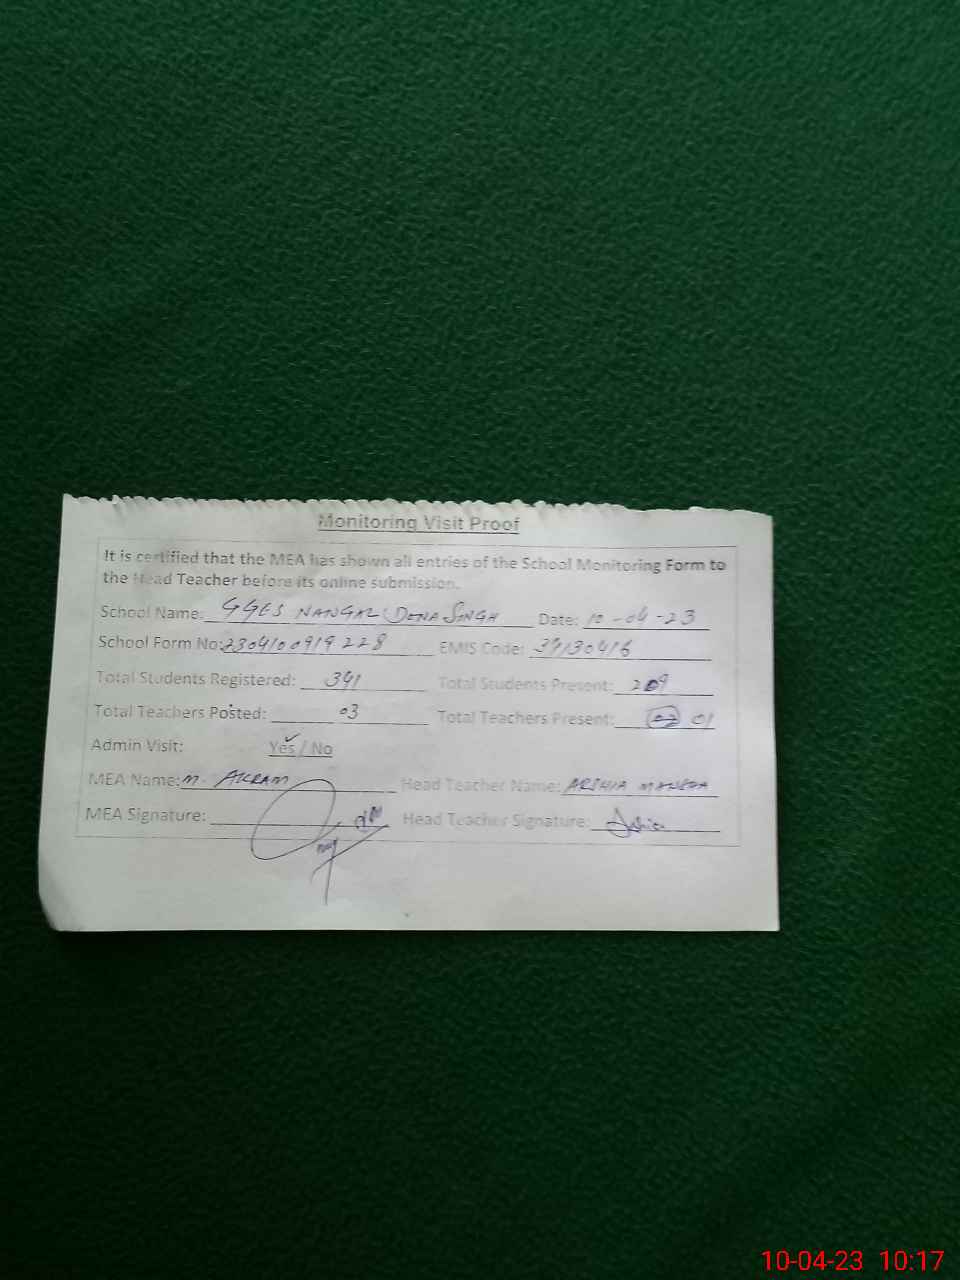 Monitoring Visit Proof
It is certified that the MEA has shown all entries of the School Monitoring Form to
the Head Teacher before its online submission.
School Name: GGES NANGAL DONA SINGH Date: 10-04-23
School Form No: 2304100919228 EMIS Code: 39130416
Total Students Registered: 391 Total Students Present: 209
Total Teachers Posted: 03 Total Teachers Present: 01
Admin Visit: Yes / No
MEA Name: M. AKRAM Head Teacher Name: ARSHIA
MEA Signature: Head Teacher Signature:
10-04-23 10:17